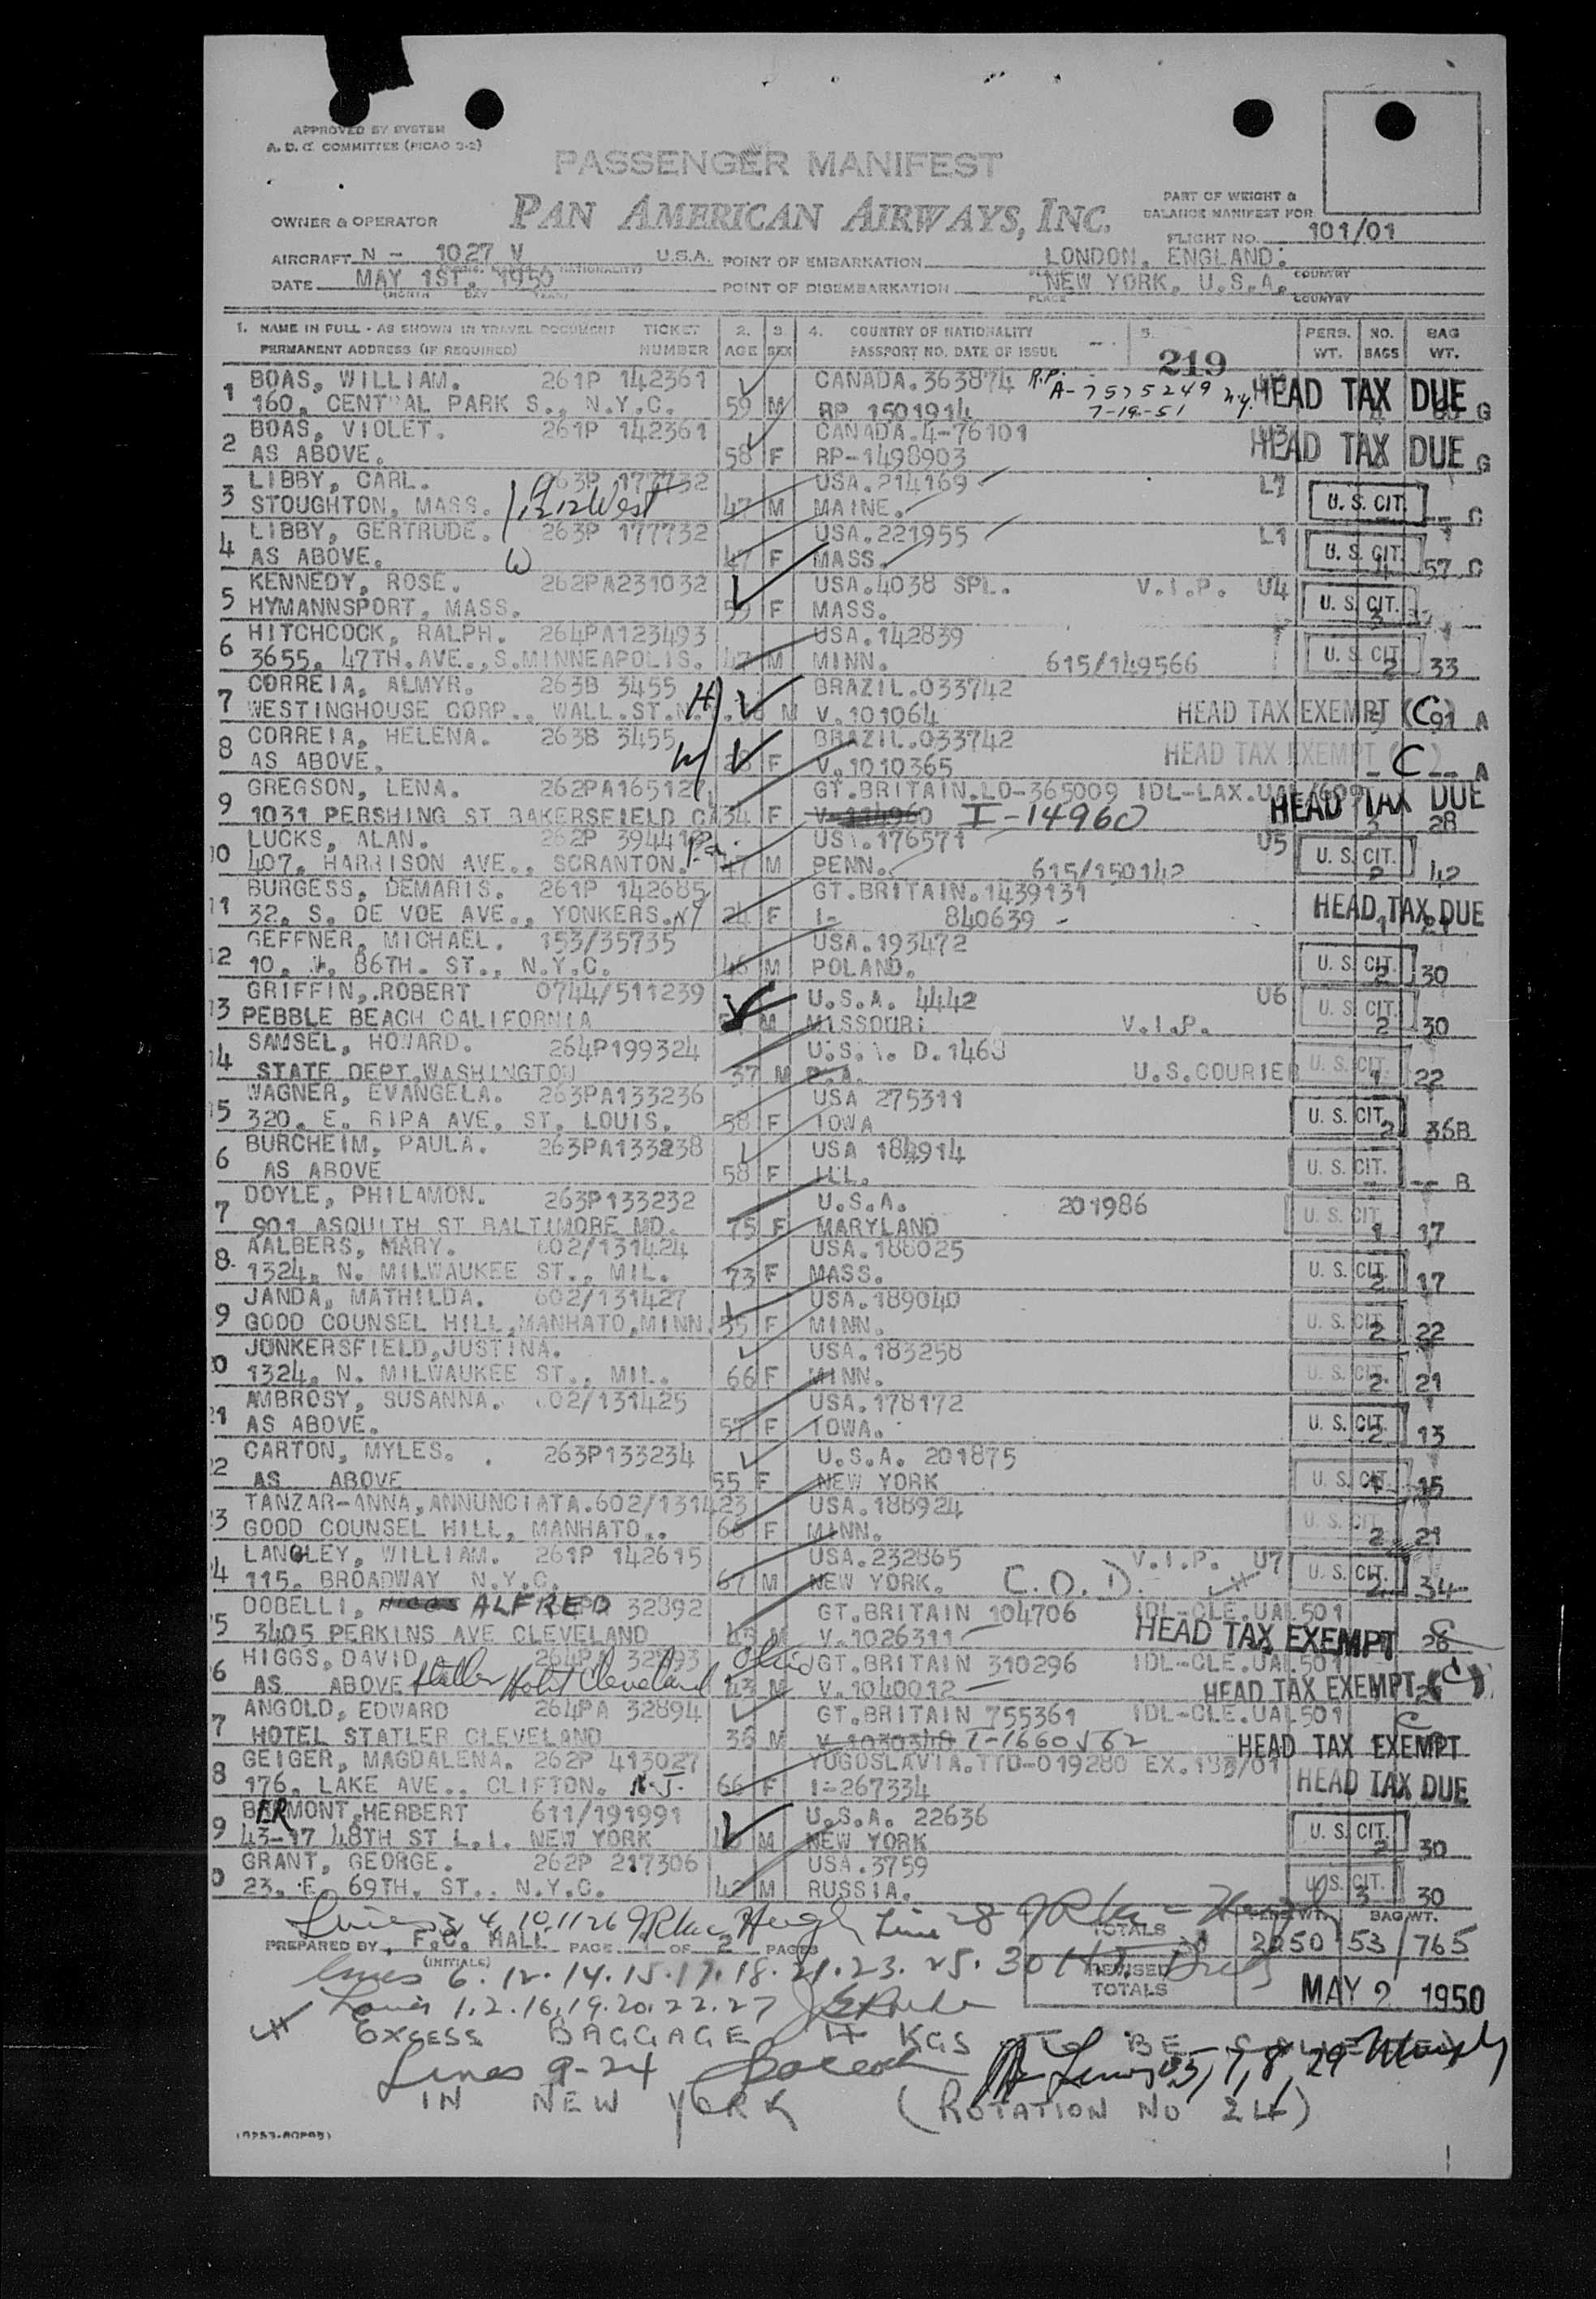 APPROVED BY SYSTEM
A.D.C. COMMITTEE (PICAO 9-2)
PASSENGER MANIFEST
PAN AMERICAN AIRWAYS, INC.
OWNER & OPERATOR
PART OF WEIGHT &
BALANCE MANIFEST FOR
FLIGHT NO. 101/01
AIRCRAFT N - 1027 V U.S.A. POINT OF EMBARKATION LONDON, ENGLAND.
COUNTRY
DATE MAY 1ST. 1950 POINT OF DISEMBARKATION NEW YORK, U.S.A.
(MONTH DAY YEAR) PLACE COUNTRY
1. NAME IN FULL - AS SHOWN IN TRAVEL DOCUMENT TICKET 2. 3 4. COUNTRY OF NATIONALITY 5. PERS. NO. BAG
PERMANENT ADDRESS (IF REQUIRED) NUMBER AGE SEX PASSPORT NO. DATE OF ISSUE 219 WT. BAGS WT.
1 BOAS, WILLIAM. 261P 142361 CANADA.363874 R.P. A-7575249 N.Y. HEAD TAX DUE
160, CENTRAL PARK S., N.Y.C. 59 M RP 1501914 7-19-51 G
2 BOAS, VIOLET. 261P 142361 CANADA.4-76101 HEAD TAX DUE
AS ABOVE. 58 F RP-1498903 G
3 LIBBY, CARL. 263P 177732 USA.214169 L1 U.S. CIT.
STOUGHTON, MASS. 1212 West 47 M MAINE. -- C
4 LIBBY, GERTRUDE. 263P 177732 USA.221955 L1 U.S. CIT.
AS ABOVE. W 47 F MASS. 4 57 C
5 KENNEDY, ROSE. 262PA231032 USA.4038 SPL. V.I.P. U4 U.S. CIT.
HYMANNSPORT, MASS. 59 F MASS. 3
6 HITCHCOCK, RALPH. 264PA123493 USA.142839 U.S. CIT.
3655, 47TH.AVE.,S.MINNEAPOLIS. 47 M MINN. 615/149566 2 33
7 CORREIA, ALMYR. 263B 3455 H BRAZIL.033742
WESTINGHOUSE CORP., WALL.ST.N. M V.101064 HEAD TAX EXEMPT (C) 91 A
8 CORREIA, HELENA. 263B 3455 W BRAZIL.033742 HEAD TAX EXEMPT (C)
AS ABOVE. 28 F V.1010365 -- A
9 GREGSON, LENA. 262PA165127 GT.BRITAIN.LO-365009 IDL-LAX.UAL/609 HEAD TAX DUE
1031 PERSHING ST BAKERSFIELD CA 34 F V-114960 I-14960 3 28
10 LUCKS, ALAN. 262P 394412 Pa. USA.176571 U5 U.S. CIT.
407, HARRISON AVE., SCRANTON. 47 M PENN. 615/150142 2 42
11 BURGESS, DEMARIS. 261P 142685 GT.BRITAIN.1439131
32, S. DE VOE AVE., YONKERS. NY 24 F I- 840639 - HEAD TAX DUE 1 21
12 GEFFNER, MICHAEL. 153/35735 USA.193472 U.S. CIT.
10, W. 86TH. ST., N.Y.C. 46 M POLAND. 2 30
13 GRIFFIN,.ROBERT 0744/511239 U.S.A. 4442 U6 U.S. CIT.
PEBBLE BEACH CALIFORNIA M MISSOURI V.I.P. 2 30
14 SAMSEL, HOWARD. 264P199324 U.S.A. D.1463 U.S. CIT.
STATE DEPT.WASHINGTON 37 M P.A. U.S.COURIER 1 22
15 WAGNER, EVANGELA. 263PA133236 USA 275311 U.S. CIT.
320, E. RIPA AVE, ST. LOUIS. 58 F IOWA 2 36B
6 BURCHEIM, PAULA. 263PA133238 USA 184914 U.S. CIT.
AS ABOVE 58 F ILL. - -- B
7 DOYLE, PHILAMON. 263P133232 U.S.A. 201986 U.S. CIT
901 ASQUITH ST BALTIMORE MD. 75 F MARYLAND 1 17
8. AALBERS, MARY. 602/131424 USA.186025 U.S. CIT.
1324, N. MILWAUKEE ST., MIL. 73 F MASS. 2 17
9 JANDA, MATHILDA. 602/131427 USA.189040 U.S. CIT.
GOOD COUNSEL HILL,MANHATO,MINN. 55 F MINN. 2 22
20 JUNKERSFIELD,JUSTINA. USA.183258 U.S. CIT.
1324, N. MILWAUKEE ST., MIL. 66 F MINN. 2 21
21 AMBROSY, SUSANNA. 602/131425 USA.178172 U.S. CIT.
AS ABOVE. 57 F IOWA. 2 13
22 CARTON, MYLES. 263P133234 U.S.A. 201875 U.S. CIT.
AS ABOVE 55 F NEW YORK 1 15
23 TANZAR-ANNA,ANNUNCIATA.602/131423 USA.188924 U.S. CIT
GOOD COUNSEL HILL, MANHATO.. 66 F MINN. 2 21
24 LANGLEY, WILLIAM. 261P 142615 USA.232865 V.I.P. U7 U.S. CIT.
115, BROADWAY N.Y.C. 67 M NEW YORK. C.O.D. 2 34
5 DOBELLI, ALFRED 32892 GT.BRITAIN 104706 IDL-CLE.UAL501
3405 PERKINS AVE CLEVELAND 45 M V.1026311 HEAD TAX EXEMPT 26
6 HIGGS, DAVID 264PA 32893 Ohio GT.BRITAIN 310296 IDL-CLE.UAL501
AS ABOVE Statler Hotel Cleveland 43 M V.1040012 HEAD TAX EXEMPT (C)
7 ANGOLD, EDWARD 264PA 32894 GT.BRITAIN 755361 IDL-CLE.UAL501 C
HOTEL STATLER CLEVELAND 36 M V-1030348 I-1660562 HEAD TAX EXEMPT
8 GEIGER, MAGDALENA. 262P 413027 YUGOSLAVIA.TTD-019280 EX.183/01 HEAD TAX DUE
176, LAKE AVE., CLIFTON. N.J. 66 F I-267334
9 BERMONT,HERBERT 611/191991 U.S.A. 22636 U.S. CIT.
43-17 48TH ST L.I. NEW YORK M NEW YORK 2 30
0 GRANT, GEORGE. 262P 217306 USA.3759 U.S. CIT.
23, E. 69TH. ST., N.Y.C. 42 M RUSSIA. 3 30
Lines 3, 4, 10, 11 26 Line 28
PREPARED BY F.C. HALL PAGE 1 OF 2 PAGES TOTALS PERS. WT. 2250 53 BAG WT. 765
(INITIALS)
Lines 6. 12. 14. 15. 17. 18. 21. 23. 25. 30 REVISED TOTALS MAY 2 1950
Lines 1. 2. 16. 19. 20. 22. 27
EXCESS BAGGAGE 4 KGS TO BE
Lines 9-24 Lines 5, 7, 8, 29
IN NEW YORK (ROTATION NO 24)